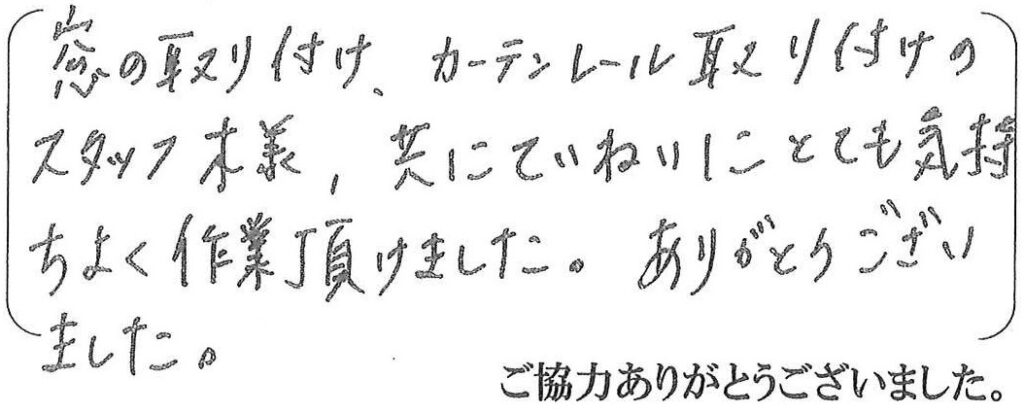 窓の取り付け、カーテンレール取り付けの
スタッフ様、共にていねいにとても気持
ちよく作業頂けました。ありがとうござい
ました。
ご協力ありがとうございました。